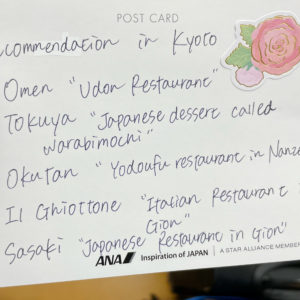 POST CARD
commendation in Kyoto
Omen "Udon Restaurant"
Tokuya "Japanese dessert called
Warabimochi"
Okutan "Yodoufu restaurant in Nanze
Il Ghiottone "Italian Restaurant
Gion"
Sasaki "Japanese Restaurant in Gion"
ANA Inspiration of JAPAN | A STAR ALLIANCE MEMBER